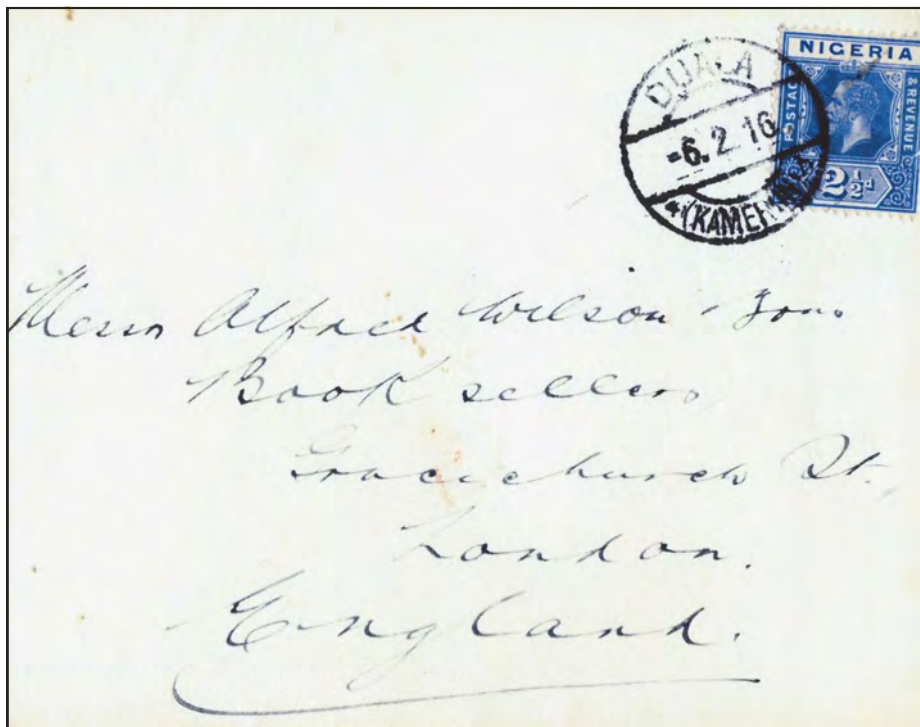 NIGERIA
POSTAGE & REVENUE
2½d
DUALA
-6.2.16
*(KAMERUN)
Messrs Alfred Wilson & Sons
Book sellers
Gracechurch St.
London.
England.